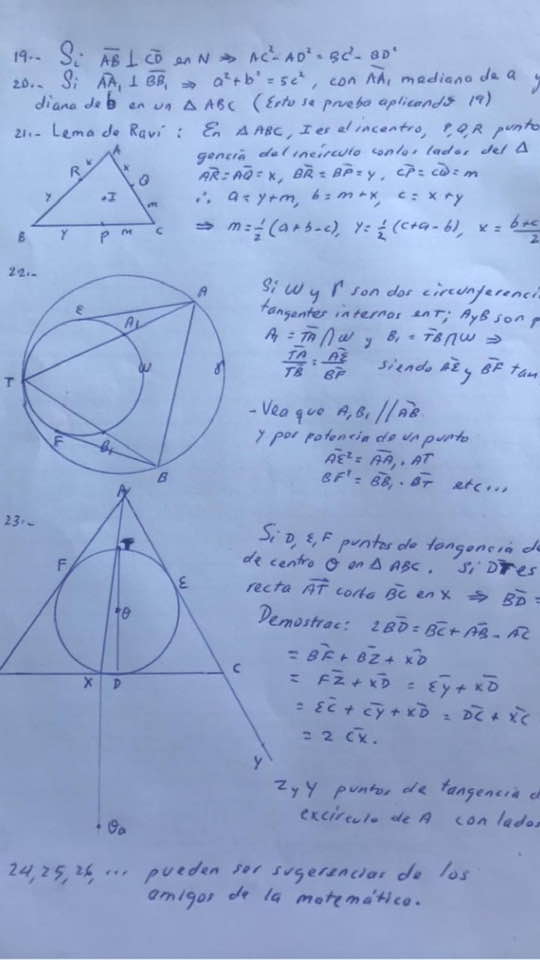 19.- Si AB ⊥ CD en N ⇒ AC² - AD² = BC² - BD²
20.- Si AA₁ ⊥ BB₁ ⇒ a² + b² = 5c², con AA₁ mediana de a y
diana de b en un Δ ABC (Esto se prueba aplicando 19)
21.- Lema de Ravi: En Δ ABC, I es el incentro, P, Q, R punto
gencia del incírculo con los lados del Δ
AR = AQ = x, BR = BP = y, CP = CQ = m
∴ a = y + m, b = m + x, c = x + y
⇒ m = ½(a+b-c), y = ½(c+a-b), x = b+c/2
A
x
R
x
Q
y
I
m
B
y
P
m
C
22.-
Si W y Γ son dos circunferenci
tangentes internos en T; A y B son p
A₁ = TA ∩ W y B₁ = TB ∩ W ⇒
TA/TB = AE/BF siendo AE y BF tan
- Vea que A₁B₁ // AB
y por potencia de un punto
AE² = AA₁ . AT
BF² = BB₁ . BT etc...
E
A
A₁
W
γ
T
F
B₁
B
23.-
Si D, E, F puntos de tangencia de
de centro θ en Δ ABC. Si DT es
recta AT corta BC en X ⇒ BD =
Demostrac: 2BD = BC + AB - AC
= BF + BZ + XD
= FZ + XD = EY + XD
= EC + CY + XD = DC + XC
= 2 CX.
A
T
F
E
θ
X
D
C
Y
θa
Z y Y puntos de tangencia d
excírculo de A con lados
24, 25, 26, ... pueden ser sugerencias de los
amigos de la matemático.